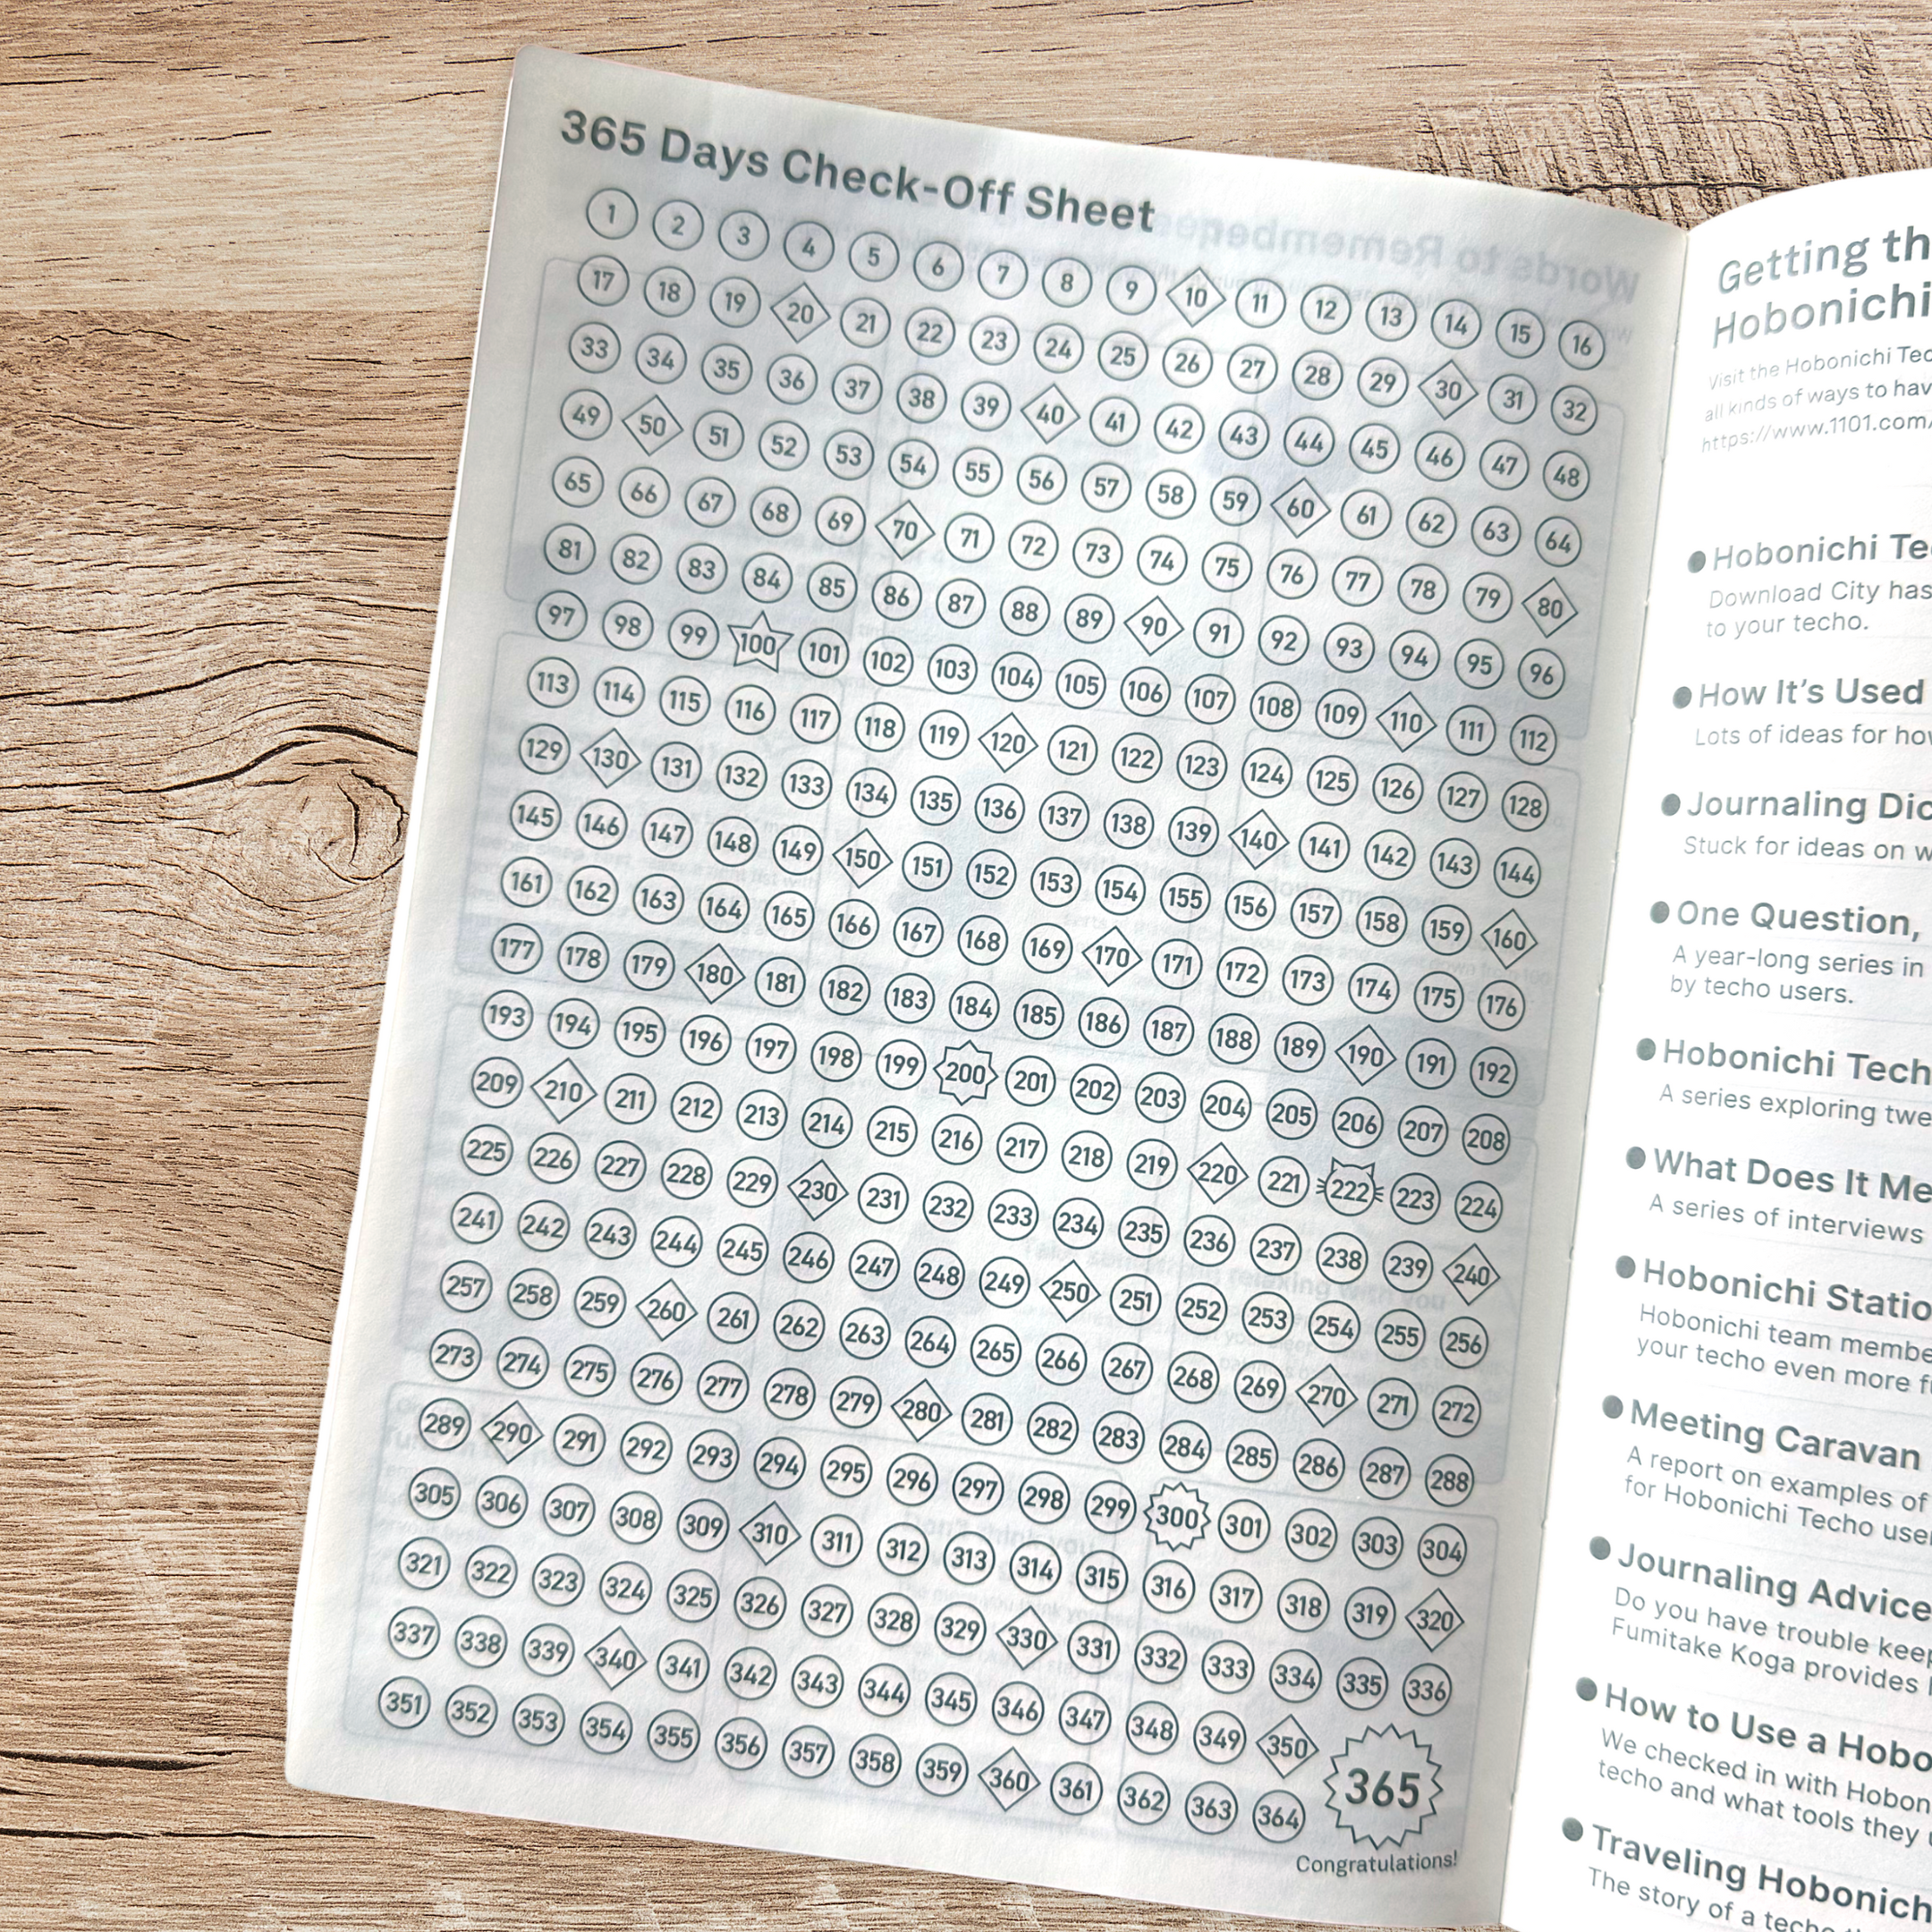 365 Days Check-Off Sheet
1 2 3 4 5 6 7 8 9 10 11 12 13 14 15 16
17 18 19 20 21 22 23 24 25 26 27 28 29 30 31 32
33 34 35 36 37 38 39 40 41 42 43 44 45 46 47 48
49 50 51 52 53 54 55 56 57 58 59 60 61 62 63 64
65 66 67 68 69 70 71 72 73 74 75 76 77 78 79 80
81 82 83 84 85 86 87 88 89 90 91 92 93 94 95 96
97 98 99 100 101 102 103 104 105 106 107 108 109 110 111 112
113 114 115 116 117 118 119 120 121 122 123 124 125 126 127 128
129 130 131 132 133 134 135 136 137 138 139 140 141 142 143 144
145 146 147 148 149 150 151 152 153 154 155 156 157 158 159 160
161 162 163 164 165 166 167 168 169 170 171 172 173 174 175 176
177 178 179 180 181 182 183 184 185 186 187 188 189 190 191 192
193 194 195 196 197 198 199 200 201 202 203 204 205 206 207 208
209 210 211 212 213 214 215 216 217 218 219 220 221 222 223 224
225 226 227 228 229 230 231 232 233 234 235 236 237 238 239 240
241 242 243 244 245 246 247 248 249 250 251 252 253 254 255 256
257 258 259 260 261 262 263 264 265 266 267 268 269 270 271 272
273 274 275 276 277 278 279 280 281 282 283 284 285 286 287 288
289 290 291 292 293 294 295 296 297 298 299 300 301 302 303 304
305 306 307 308 309 310 311 312 313 314 315 316 317 318 319 320
321 322 323 324 325 326 327 328 329 330 331 332 333 334 335 336
337 338 339 340 341 342 343 344 345 346 347 348 349 350
351 352 353 354 355 356 357 358 359 360 361 362 363 364 365
Congratulations!
Getting th
Hobonichi
Visit the Hobonichi Tec
all kinds of ways to hav
https://www.1101.com/
● Hobonichi Te
Download City has
to your techo.
● How It's Used
Lots of ideas for how
● Journaling Dic
Stuck for ideas on w
● One Question,
A year-long series in
by techo users.
● Hobonichi Tech
A series exploring twe
● What Does It Me
A series of interviews
● Hobonichi Statio
Hobonichi team membe
your techo even more f
● Meeting Caravan
A report on examples of
for Hobonichi Techo use
● Journaling Advice
Do you have trouble kee
Fumitake Koga provides
● How to Use a Hobo
We checked in with Hobon
techo and what tools they
● Traveling Hobonich
The story of a techo